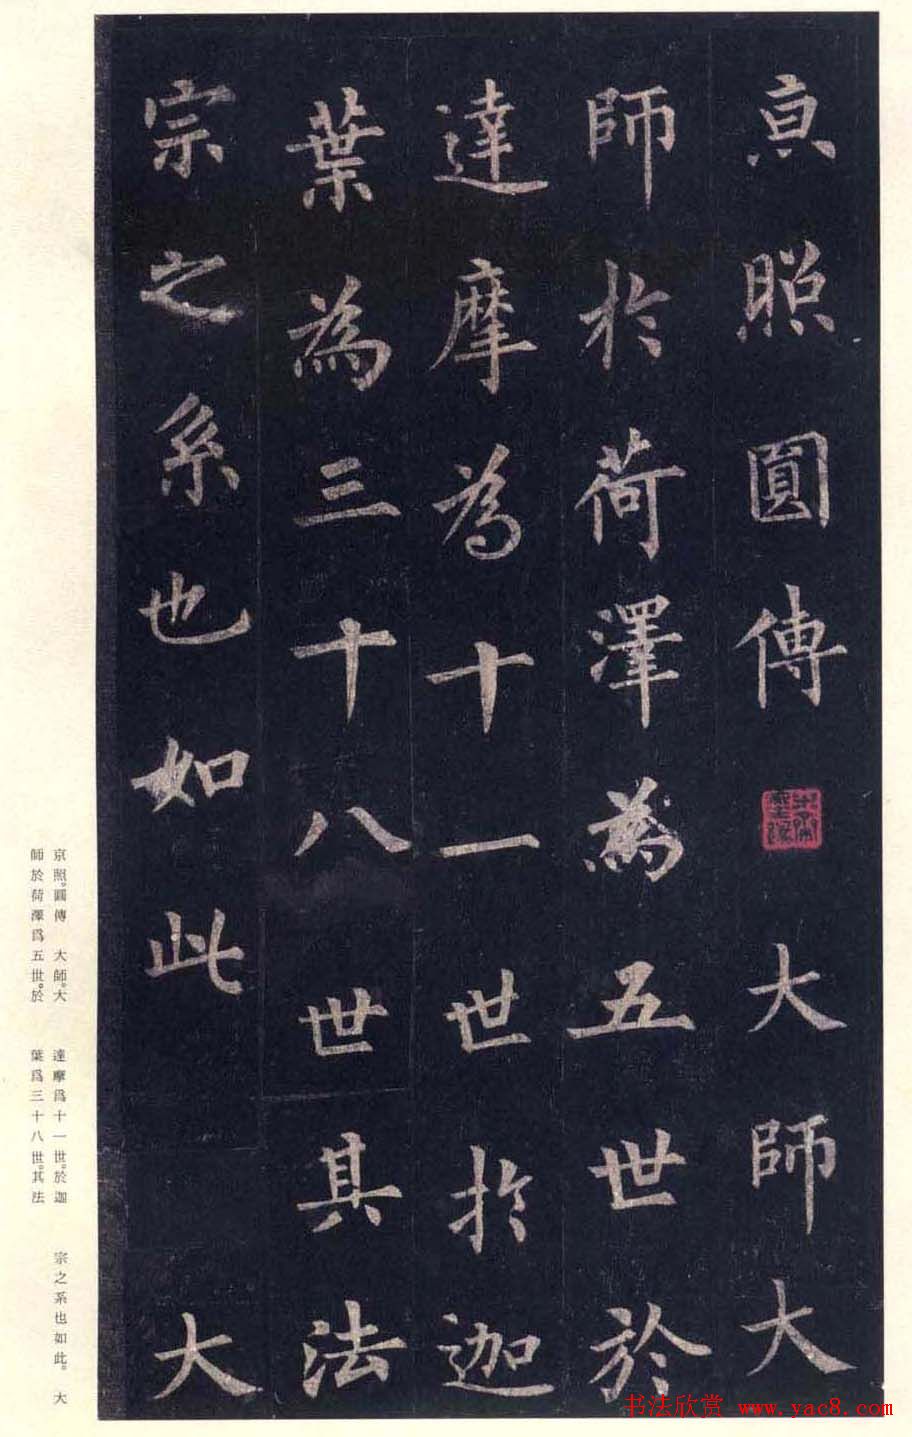 京照圓傳 大師大
師於荷澤為五世於
達摩為十一世於迦
葉為三十八世其法
宗之系也如此 大
京照。圓傳 大師。大
師於荷澤爲五世。於
達摩爲十一世。於迦
葉爲三十八世。其法
宗之系也如此。 大
书法欣赏 www.yac8.com